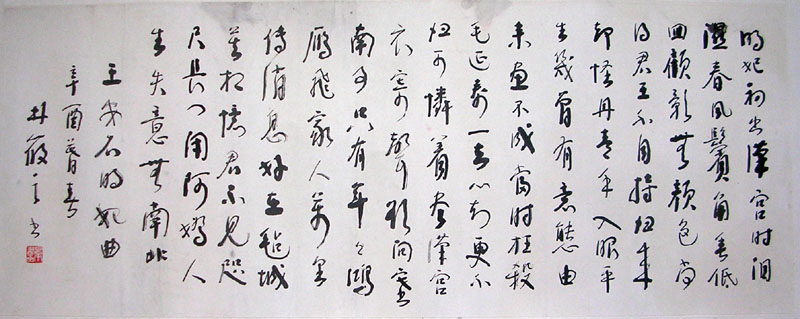 明妃初出漢宮时泪
濕春風鬢角垂低
回顧影無顏色尚
得君王不自持归来
却怪丹青手入眼平
生幾曾有意態由
来画不成當时枉殺
毛延壽一去心知更不
归可憐着尽漢宮
衣寄聲欲問塞
南事只有年々鴻
雁飛家人萬里
傳消息好在氈城
莫相憶君不見咫
尺長门闭阿嬌人
生失意無南北
王安石明妃曲
辛酉暮春
林筱之书